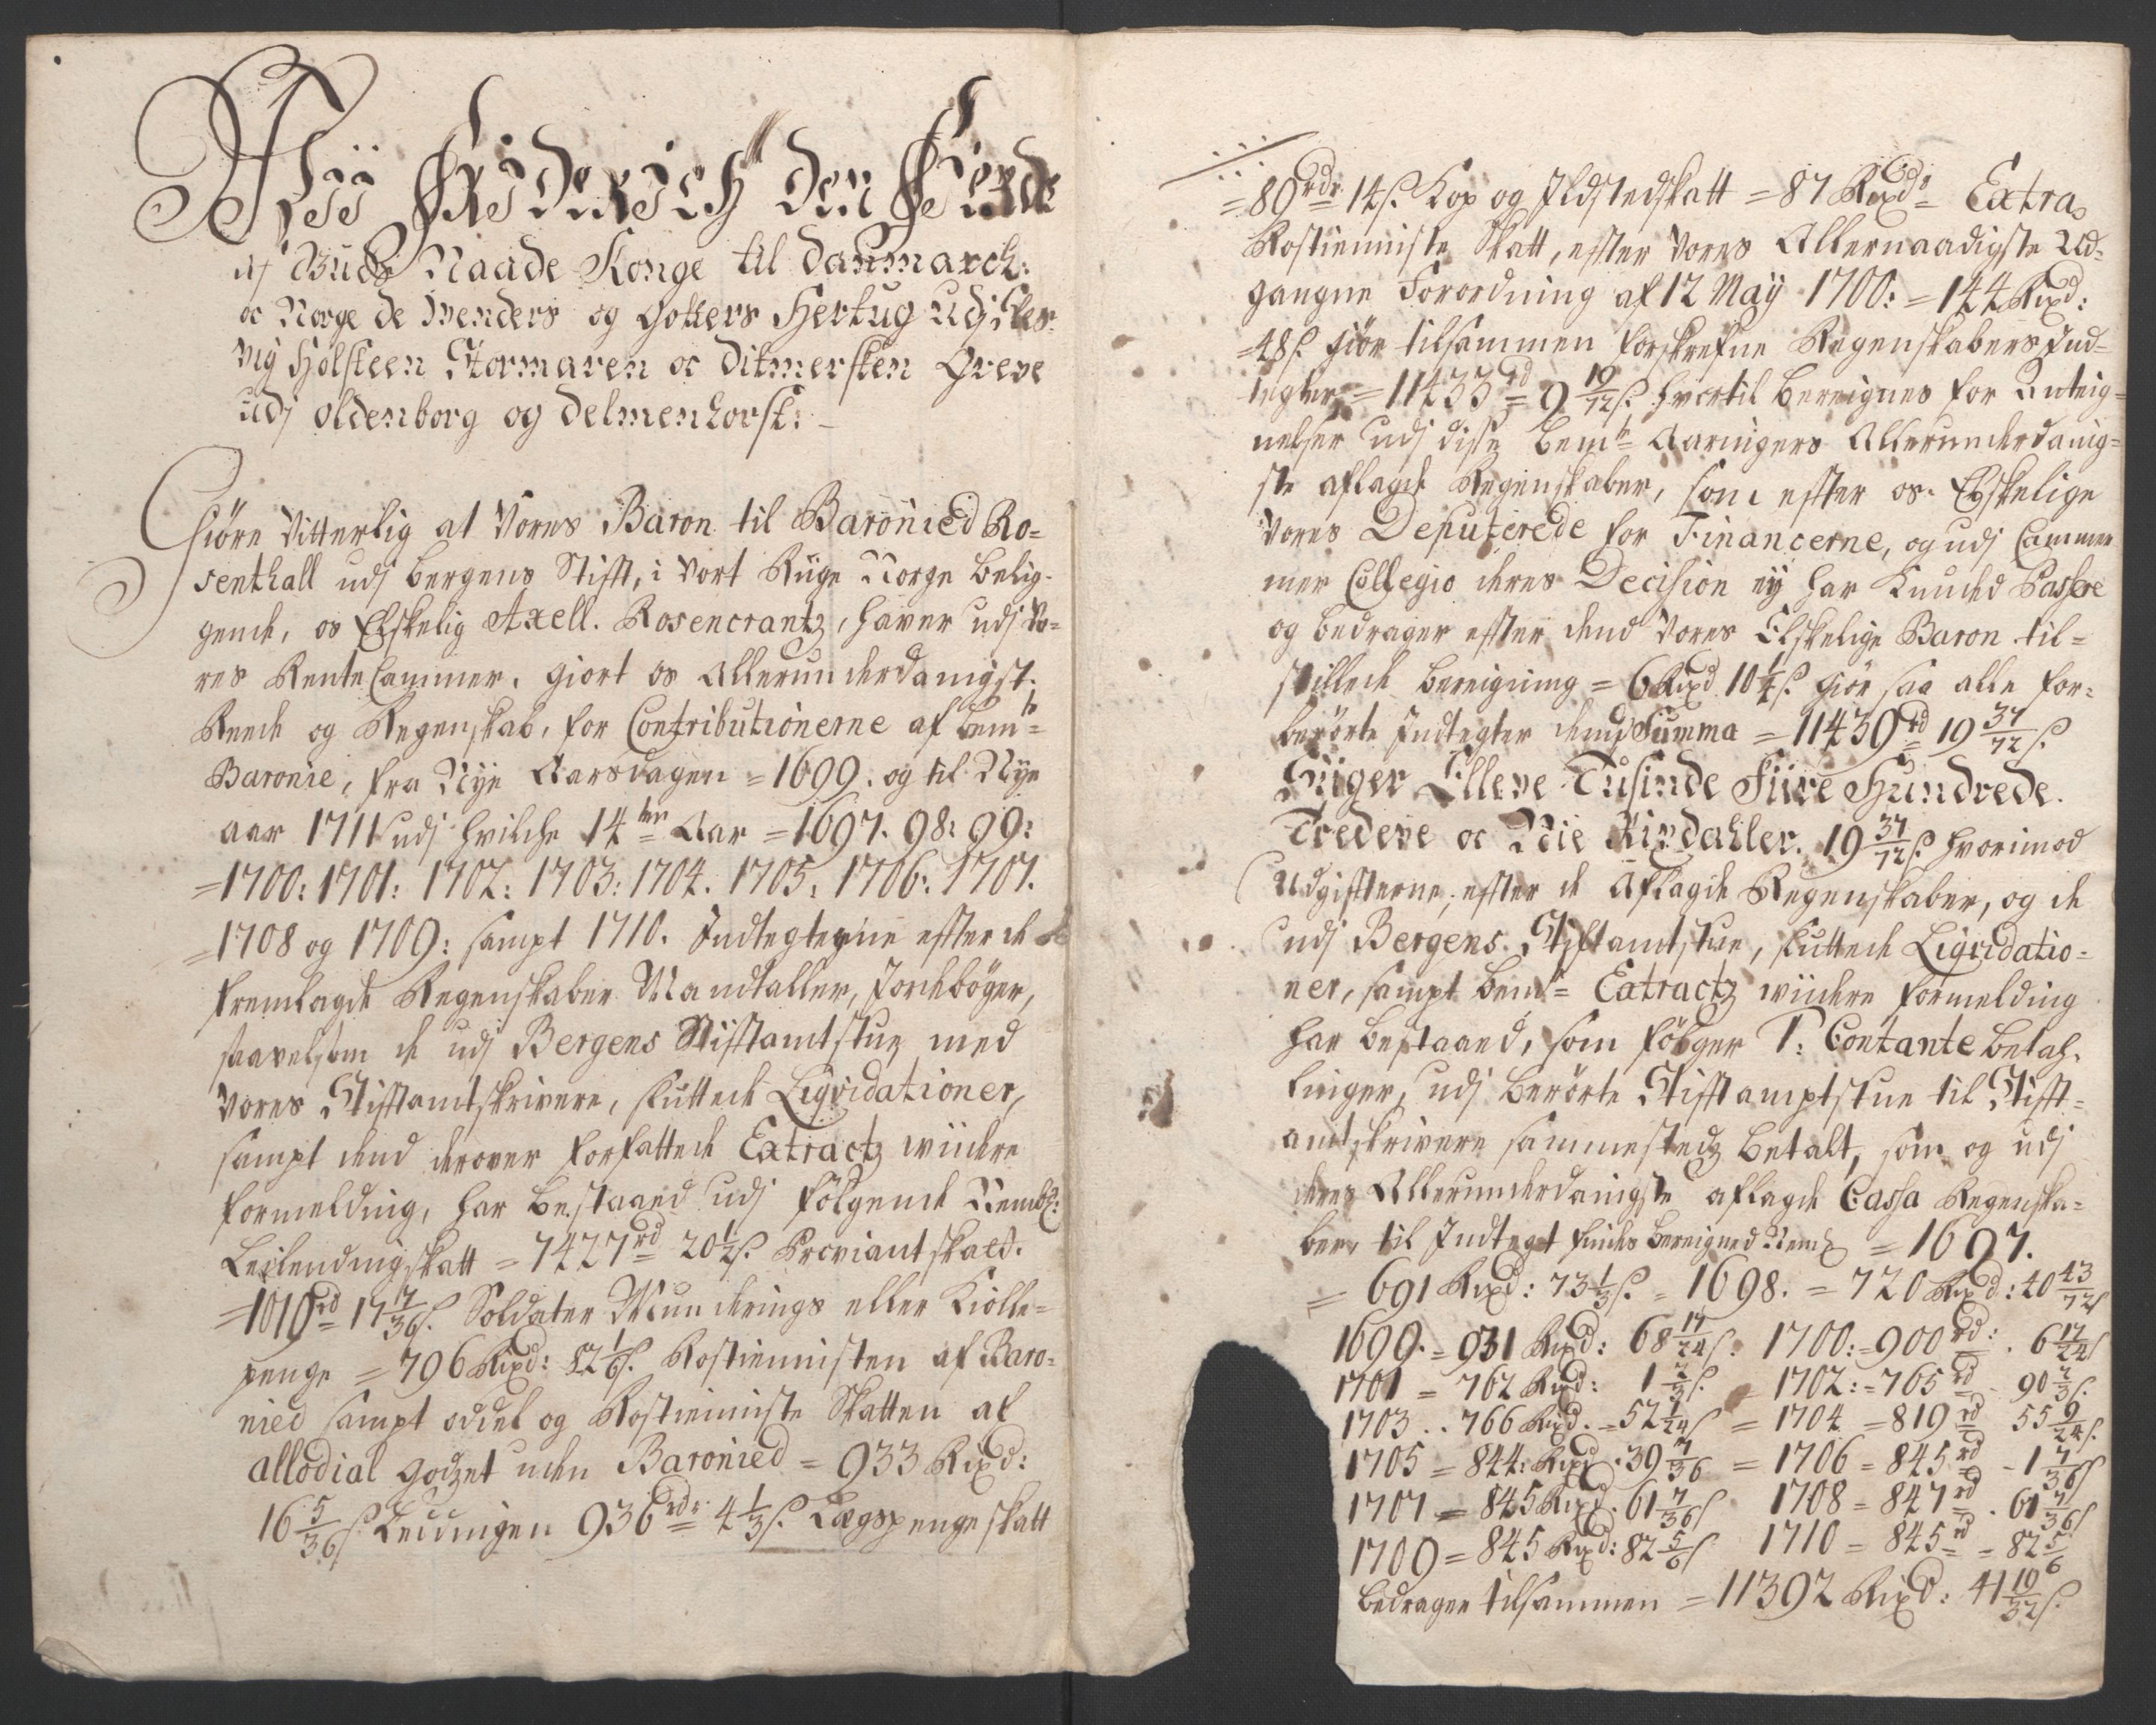 Wii Friderich den Fierde
af Guds Naade Konge til Danmarck:
oc Norge de Wenders og Gotters Hertug udj Sles-
vig Holsteen Stormaren oc Ditmersken Greve
udj Oldenborg og Delmenhorst: -
Giöre Vitterlig at Vores Baron til Baronied Ro=
senthall udj Bergens Stift, i vort Riige Norge belig-
gende, os Elskelig Axell. Rosencrantz, haver udj Vo=
res Rente Cammer, giort os Allerunderdanigst.
Reede og Regenskab, for Contributionerne af bemte=
Baronie, fra Nye Aarsdagen = 1699. og til Nye
aar 1711 udj hvilche 14ten Aar = 1697. 98: 99:
=1700: 1701: 1702: 1703: 1704. 1705. 1706: 1707.
=1708 og 1709: sampt 1710. Indtegterne effter de
fremlagde Regenskaber Mandtaller, Jordebøger,
saavelsom de udj Bergens Stifftamtstue med
Vores Stifftamtskrivere, sluttede Liqvidationer,
sampt dend derover forfattede Extractz viidere
formelding, har bestaaed udj følgende Neml:
Leilendingskatt = 7427rd 20½ s. Proviantskatt.
=1019rd 17 7/36 s. Soldater Munderings eller Kiolle=
penge = 796 Rixd: 82 1/6 s. Rostienisten af Baro=
nied sampt oddel og Rostieniste Skatten af
allodial godzet uden Baronied = 933 Rixd:
16 5/36 s. Leedingen 936rdr 4 1/3 s. Lægspengeskatt
= 89rdr 14 s. Kop og Ildstedskatt = 87 Rixdr Extra
Rostieniste Skatt, effter Vores Allernaadigste Ud=
gangne Forordning af 12 Maij 1700: = 144 Rixd:
=48 s. giör tilsammen forskrefne Regenskabers Ind=
tegter = 11433rd = 9 19/72 s. hvortil bereignes for Anteig=
nelser udj disse bemte Aaringers Allerunderdanig=
ste aflagde Regenskaber, som effter os Elskelige
Vores Deputerede for Financerne, og udj Cammer
mer Collegio deres Decision ej har kunded Passere
og bedrager effter dend Vores Elskelige Baron til=
stillede bereigning = 6 Rixd 10¼ s. giör saa alle for=
berörte Indtegter dend Summa = 11439rd 19 37/72 s.
Siiger Elleve Tusinde Fiire Hundrede.
Tredeve oc Nie Rixdahler. 19 37/72 s. hvorimod
Udgiffterne, effter de aflagde Regenskaber, og de
udj Bergens Stiftamtstue, sluttede Liqvidatio=
ner, sampt bemte= Extractz viidere formelding
har bestaaed, som fölger 1: Contante betah=
linger, udj berörte Stifftamptstue til Stifft=
amtskrivere sammestedz betalt, som og udj
deres Allerunderdanigste aflagde Cassa Regenska=
ber, til Indtegt findes bereigned Neml = 1697.
= 691 Rixd: 73 1/3 s. = 1698. = 720 Rixd: 40 43/72 s
1699. = 931 Rixd: 68 17/24 s. 1700: = 900rd: . 6 17/24 s
1701 = 762 Rixd: 1 2/3 s. = 1702: = 765rd = 90 2/3 s.
1703 .. 766 Rixd. = 52 1/24 s = 1704 = 819rd 55 9/24 s.
1705 = 844: Rixd. 39 7/36 = 1706 = 845rd - 1 7/36 s
1707 = 845 Rixd. 61 7/36 s 1708 = 847rd . 61 7/36 s
1709 = 845 Rixd: 82 5/6 s 1710 = 845rd = 82 5/6
bedrager tilsammen = 11392 Rixd: 41 19/32 s.